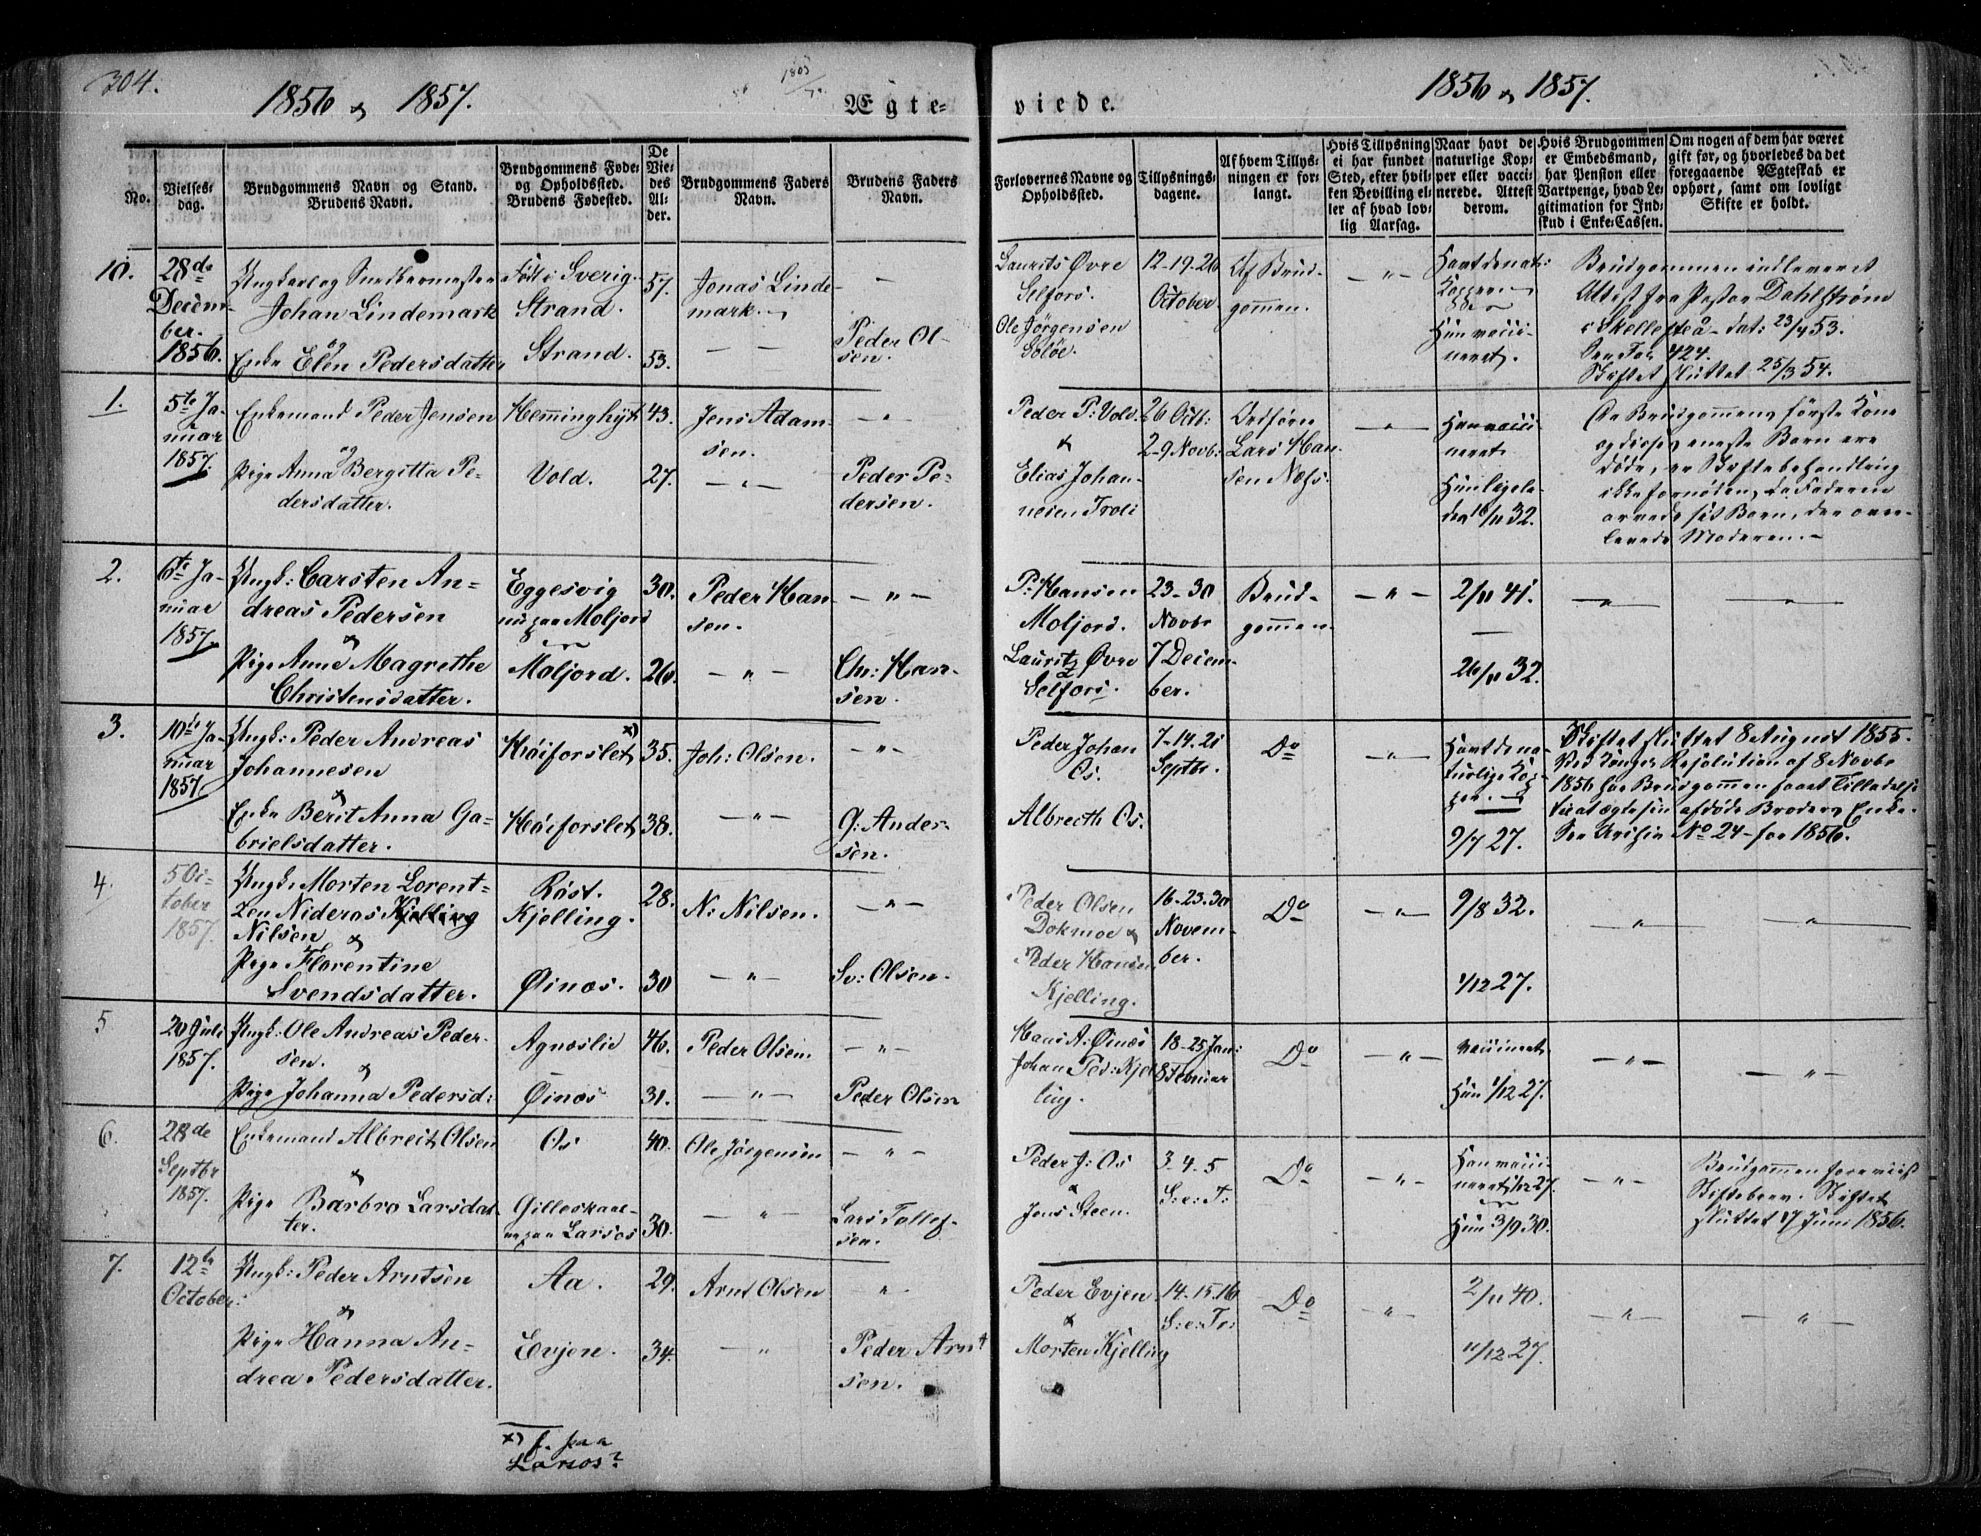 304.
1856 & 1857.
Ægte=
viede.
1856 & 1857.
No.
Vielses-
dag.
Brudgommens Navn og Stand.
Brudens Navn.
Brudgommens Føde-
og Opholdssted.
Brudens Fødested.
De
Vie-
des
Al-
der.
Brudgommens Faders
Navn.
Brudens Faders
Navn.
Forlovernes Navne og
Opholdssted.
Tillysnings-
dagene.
Af hvem Tillys-
ningen er for-
langt.
Hvis Tillysning
ei har fundet
Sted, efter hvil-
ken Bevilling el-
ler af hvad lov-
lig Aarsag.
Naar havt de
naturlige Kop-
per eller vacci-
nerede. Attest
derom.
Hvis Brudgommen
er Embedsmand,
har Pension eller
Vartpenge, hvad Le-
gitimation for Ind-
skud i Enke-Cassen.
Om nogen af dem har været
gift før, og hvorledes da det
foregaaende Ægteskab er
ophørt, samt om lovligt
Skifte er holdt.
10.
28de
Decem-
ber.
1856.
Ungkarl og Snedkermester
Johan Lindemark
og
Enke Elen Pedersdatter
Født i Sverig.
Strand.
Strand.
57.
53.
Jonas Linde-
mark.
Peder Ol-
sen.
Laurits Øvre
Selfors.
Ole Jørgensen
Soløe.
12-19-26
October.
Af Brud-
gommen.
Havt de nat:
Kopper.
Hun vacci-
neret.
Brudgommen indleveret
Attest fra Pastor Dahlstrøm
i Skellefteå dat: 23/4 53.
424.
Skiftet sluttet 25/3 54.
1.
5te Ja-
nuar
1857.
Enkemand Peder Jensen
og
Pige Anna Bergitta Pe-
dersdatter.
Hemminghyt
Vold.
43.
27.
Jens Adam-
sen.
Peder Pe-
dersen.
Peder P: Vold.
&
Elias Johan-
nesen Troli
26 Octb:
2-9 Novb:
Lars Han-
sen Næss.
Han vacci-
neret
Hun ligele-
des 32.
Da Brudgommens første Kone
og disses eneste Barn ere
døde, er Skiftebehandling
ikke fornøden, da Faderen
arvede sit Barn, der over-
levede Moderen.
2.
6te Ja-
nuar
1857.
Ungk: Carsten An-
dreas Pedersen
&
Pige Anne Magrethe
Christensdatter.
Eggesvig
nu paa Moljord
Moljord.
30.
26.
Peder Han-
sen.
Chr: Han-
sen.
P: Hansen
Moljord.
Laurits Øvre
Selfors.
23-30
Novbr
7 Decem-
ber.
Brud-
gommen.
2/11 41.
26/11 32.
3.
10de Ja-
nuar
1857.
Ungk: Peder Andreas
Johannesen
&
Enke Berit Anna Ga-
brielsdatter.
Høiforslet x)
Høiforslet
35.
38.
Joh: Olsen.
G: Ander-
sen.
Peder Johan
Os.
Albrecth Os.
7-14-21
Septbr.
Do
Havt de na-
turlige Kop-
per.
9/7 27.
Skiftet sluttet 8 August 1855.
Ved Konges Resolution af 8 Novbr
1856 har Brudgommen faaet Tilladelse
til at ægte sin afdøde Broders Enke.
See Archiv No 24 for 1856.
4.
5 Oc-
tober
1857.
Ungk. Morten Lorent-
zen Nideros Kjelling
Nilsen
&
Pige Florentine
Svendsdatter.
Røst.
Kjelling.
Øinæs.
28.
30
N: Nilsen.
Sv: Olsen.
Peder Olsen
Dokmoe &
Peder Hansen
Kjelling.
16-23-30
Novem-
ber.
Do
9/8 32.
1/12 27.
5
20 Juli
1857.
Ungk: Ole Andreas Peder-
sen.
&
Pige Johanna Pedersd:
Agnæslie
Øinæs
46.
31.
Peder Olsen.
Peder Olsen
Hans A: Øinæs
Johan Ped: Kjel-
ling.
18-25 Jan:
8 Februar
Do
vaccineret.
Hun 1/12 27.
6.
28de
Septbr
1857.
Enkemand Albrect Olsen
&
Pige Barbro Larsdat-
ter.
Os
Gilleskaal
nu paa Larsos
40.
30.
Ole Jørgensen
Lars Tollef-
sen.
Peder J: Os
&
Jens Steen.
3-4-5
S: e: T:
Do
Han vacci-
neret 1/12 27.
Hun 3/9 30.
Brudgommen foreviist
Skiftebrev. Skiftet
sluttet 17 Juni 1856.
7.
12te
October.
Ungk: Peder Arntsen
&
Pige Hanna An-
drea Pedersdatter.
Aa.
Evjen.
29.
34.
Arnt Olsen
Peder Arnt-
sen.
Peder Evjen
&
Morten Kjelling
14-15-16
S: e: Tr:
Do
2/11 40.
11/12 27.
x) f. paa
Larsos?